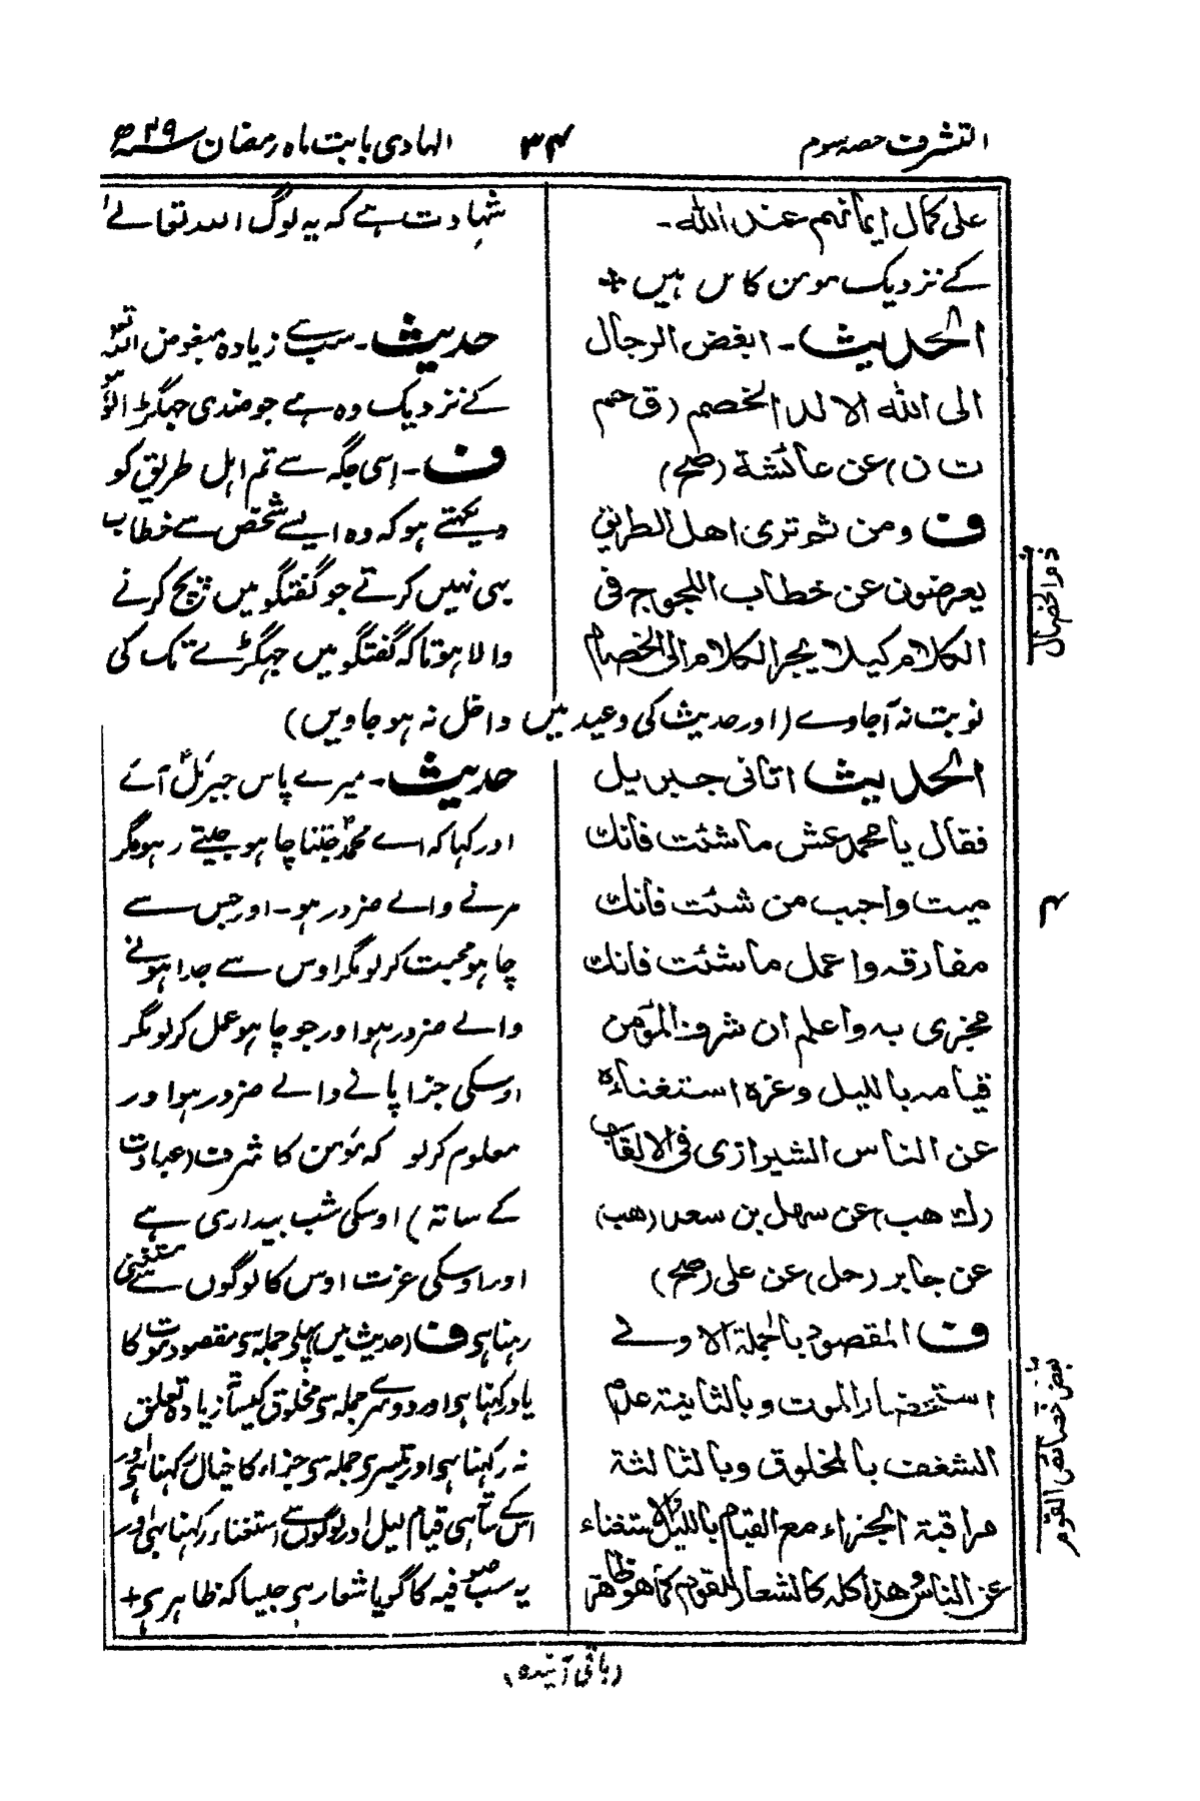 التشرف حصہ سوم
۳۴
الہادی بابت ماہ رمضان سنہ ۴۹ھ
علی کمال ایمانہم عند اللہ۔
کے نزدیک مومن کامل ہیں +
الحدیث۔ ابغض الرجال
الی اللہ الالد الخصم (ق حم
ت ن) عن عائشة (صح)
ف ومن ثم تری اهل الطریق
یعرضون عن خطاب اللجوج فی
الکلام کیلا یجر الکلام الی الخصام
شہادت ہے کہ یہ لوگ اللہ تعالےٰ
حدیث۔ سب سے زیادہ مبغوض اللہ تعالیٰ
کے نزدیک وہ ہے جو ضدی جہگڑالو ہو
ف۔ اسی جگہ سے تم اہل طریق کو
دیکہتے ہو کہ وہ ایسے شخص سے خطاب
ہی نہیں کرتے جو گفتگو میں پچ کرنے
والا ہو تاکہ گفتگو میں جہگڑے تک کی
نوبت نہ آجاوے (اور حدیث کی وعید میں داخل نہ ہو جاویں)
الحدیث اتانی جبریل
فقال یا محمد عش ما شئت فانک
میت واحبب من شئت فانک
مفارقہ واعمل ما شئت فانک
مجزی بہ واعلم ان شرف المؤمن
قیامہ باللیل وعزہ استغناءہ
عن الناس الشیرازی فی الالقاب
(ک هب) عن سہل بن سعد (هب)
عن جابر (حل) عن علی (صح)
ف المقصود بالجملة الاولے
استحضار الموت وبالثانیة عدم
الشغف بالمخلوق وبالثالثة
مراقبة الجزاء مع القیام باللیل والاستغناء
عن الناس وهذا کلہ کالشعار للقوم کما هو ظاهر
حدیث۔ میرے پاس جبرئیلؑ آئے
اور کہا کہ اے محمدؐ جتنا چاہو جیتے رہو مگر
مرنے والے ضرور ہو۔ اور جس سے
چاہو محبت کر لو مگر اوس سے جدا ہونے
والے ضرور ہو اور جو چاہو عمل کر لو مگر
اوسکی جزا پانے والے ضرور ہو اور
معلوم کر لو کہ مومن کا شرف (عبادت
کے ساتہ) اوسکی شب بیداری ہے
اور اوسکی عزت اوس کا لوگوں سے مستغنی
رہنا ہی ف (حدیث میں) پہلے جملہ سے مقصود موت کا
یاد رکہنا ہی اور دوسرے جملہ سی مخلوق کیساتہ زیادہ تعلق
نہ رکہنا ہی اور تیسری جملہ سی جزاء کا خیال رکہنا ہی اور
اس کے ساتہ ہی قیام لیل اور لوگوں سے استغناء رکہنا ہی اور
یہ سب صوفیہ کا گویا شعار ہی جیسا کہ ظاہر ہی +
ذم الخصال
بعض خصائص القوم
(باقی آیندہ)